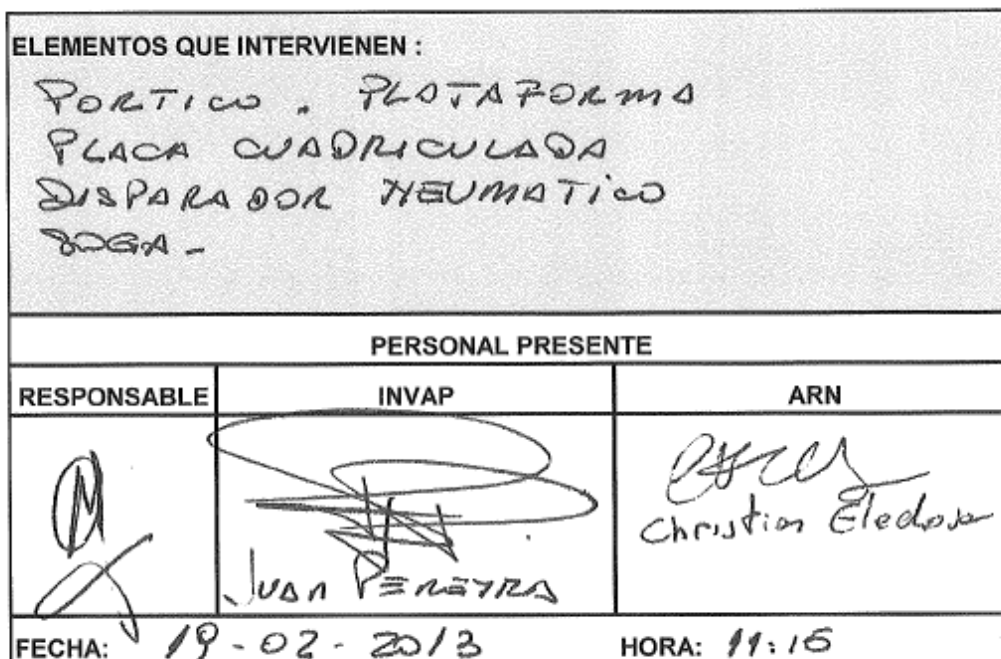 ELEMENTOS QUE INTERVIENEN :
PORTICO . PLATAFORMA
PLACA CUADRICULADA
DISPARADOR NEUMATICO
SOGA -
PERSONAL PRESENTE
RESPONSABLE INVAP ARN
JUAN PEREYRA Christian
FECHA: 19-02-2013 HORA: 11:15